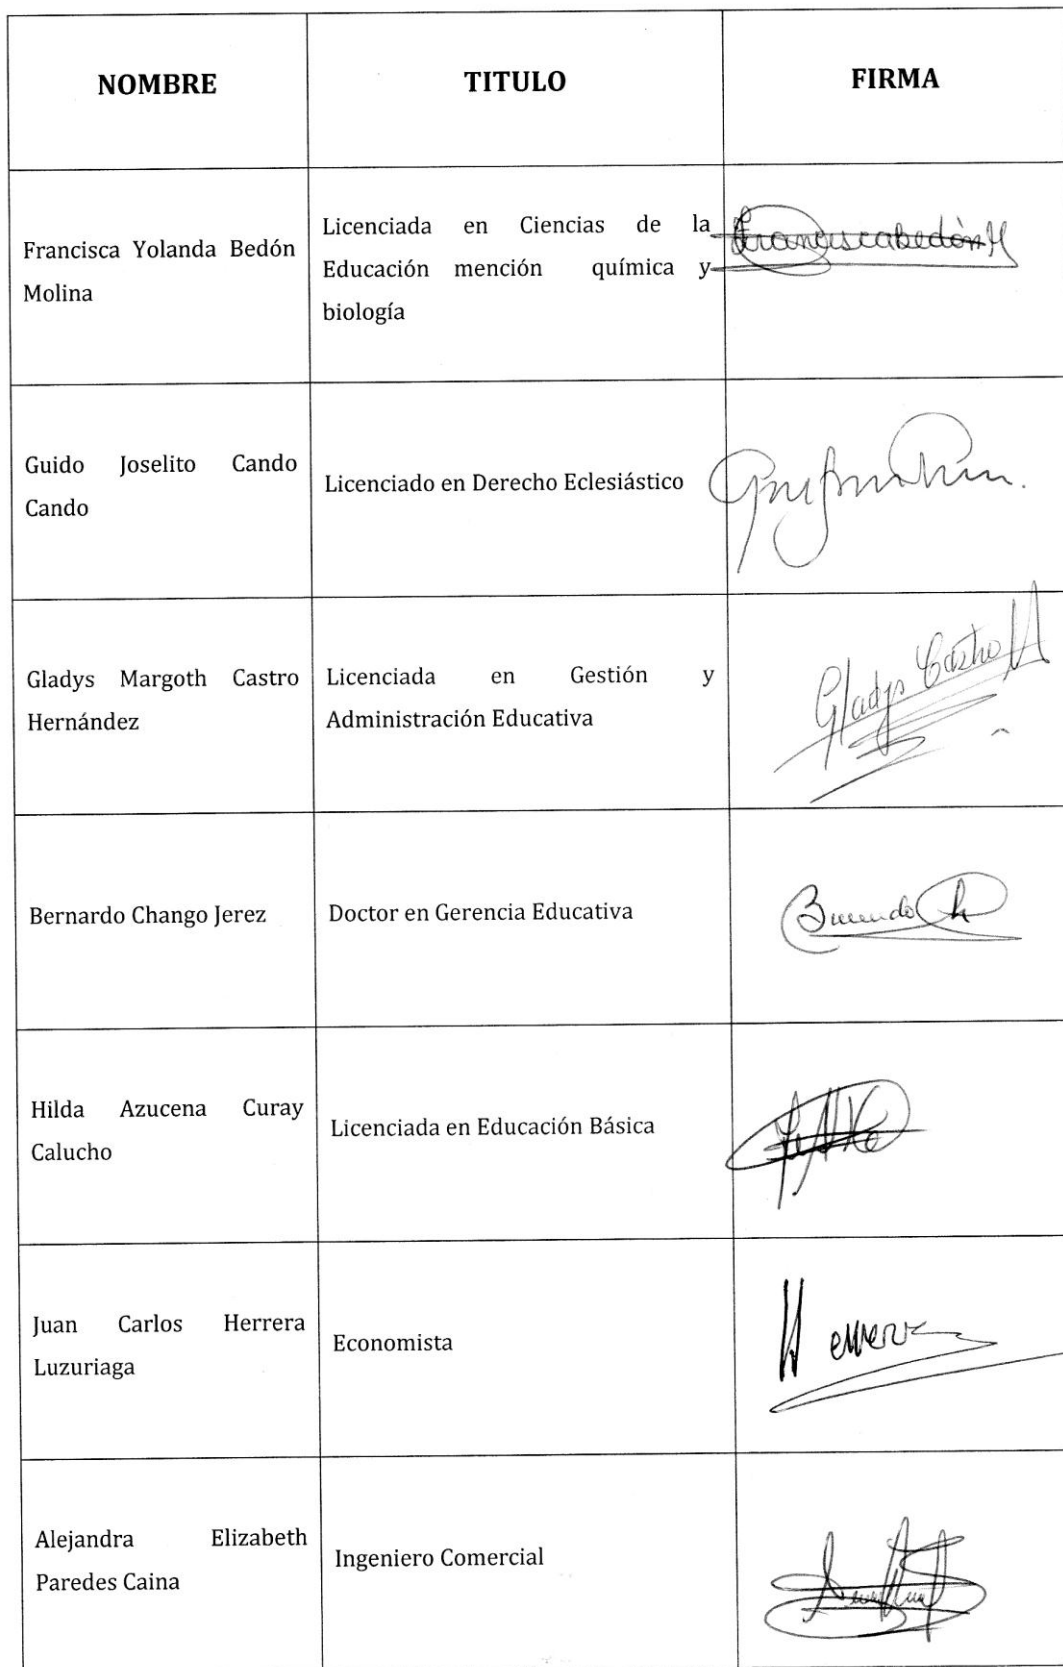 NOMBRE TITULO FIRMA
Francisca Yolanda Bedón
Molina
Licenciada en Ciencias de la
Educación mención química y
biología
Franciscabedón M
Guido Joselito Cando
Cando
Licenciado en Derecho Eclesiástico
Gladys Margoth Castro
Hernández
Licenciada en Gestión y
Administración Educativa
Gladys Castro H
Bernardo Chango Jerez
Doctor en Gerencia Educativa
Hilda Azucena Curay
Calucho
Licenciada en Educación Básica
Juan Carlos Herrera
Luzuriaga
Economista
Alejandra Elizabeth
Paredes Caina
Ingeniero Comercial